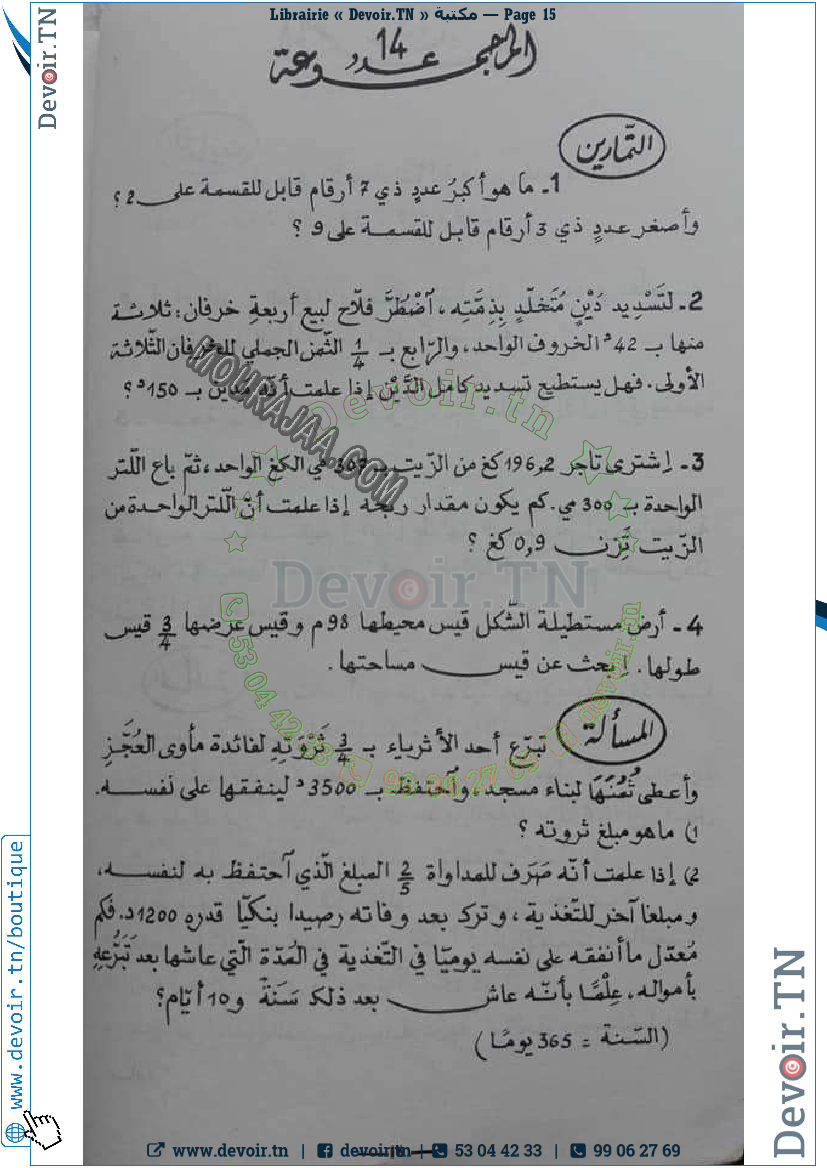 Librairie « Devoir.TN » مكتبة — Page 15
المجموعة عدد 14
التمارين
1- ما هو أكبرُ عددٍ ذي 7 أرقام قابل للقسمة على 2 ؟
وأصغر عددٍ ذي 3 أرقام قابل للقسمة على 9 ؟
2- لتَسْدِيد دَيْنٍ مُتَخلّدٍ بِذِمّتِه، اُضْطُرَّ فلّاح لبيع أربعةِ خرفان: ثلاثة
منها بـ 42د الخروف الواحد، والرّابع بـ 1/4 الثّمن الجملي للخرفان الثّلاثة
الأولى. فهل يستطيع تسديد كامل الدَّيْن إذا علمت أنّه مدين بـ 150د؟
3- إشترى تاجر 196,2 كغ من الزّيت بـ مي الكغ الواحد، ثمّ باع اللّتر
الواحدة بـ 300 مي. كم يكون مقدار ربحه إذا علمت أنّ اللّتر الواحدة من
الزّيت تَزِن 0,9 كغ ؟
4- أرض مستطيلة الشّكل قيس محيطها 98 م وقيس عرضها 3/4 قيس
طولها. إبحث عن قيس مساحتها.
المسألة
تبرّع أحد الأثرياء بـ 3/4 ثَرْوَتِهِ لفائدة مأوى العُجَّزِ
وأعطى ثُمُنَهَا لبناء مسجد، وآحتفظ بـ 3500د لينفقها على نفسه.
1) ما هو مبلغ ثروته ؟
2) إذا علمت أنّه صَرَف للمداواة 2/5 المبلغ الّذي آحتفظ به لنفسه،
ومبلغا آخر للتّغذية، وترك بعد وفاته رصيدا بنكيّا قدره 1200د. فكم
مُعدّل ما أنفقه على نفسه يوميّا في التّغذية في المُدّة الّتي عاشها بعد تَبَرُّعِهِ
بأمواله، عِلْمًا بأنّه عاش بعد ذلك سَنَةً و10 أيّام؟
(السّنة = 365 يومًا)
MOURAJAA.COM
Devoir.tn
Devoir.TN
53 04 42 33
99 06 27 69
devoir.tn
Devoir.TN
www.devoir.tn/boutique
Devoir.TN
www.devoir.tn | devoir.tn | 53 04 42 33 | 99 06 27 69